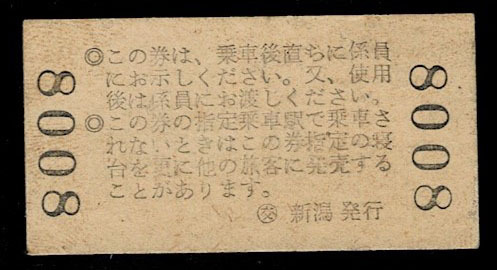 ◎この券は、乗車後直ちに係員
にお示しください。又、使用
後は係員にお渡しください。
◎この券に指定の乗車駅で乗車さ
れないときはこの券で指定の寝
台を更に他の旅客に発売する
ことがあります。
㊋ 新潟 発行
8008
8008